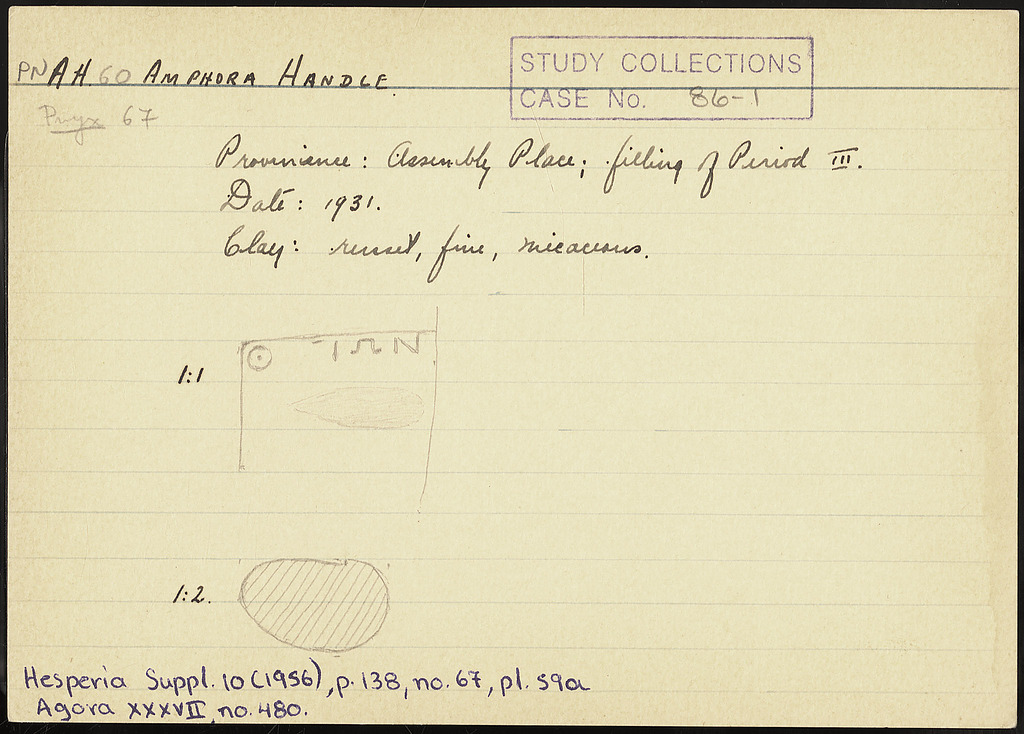 PN AH. 60 AMPHORA HANDLE.
STUDY COLLECTIONS
CASE No. 86-1
Pnyx 67
Provenience: Assembly Place; filling of Period III.
Date: 1931.
Clay: russet, fine, micaceous.
ΙΩΝ
1:1
1:2.
Hesperia Suppl. 10 (1956), p. 138, no. 67, pl. 59a
Agora XXXVII, no. 480.